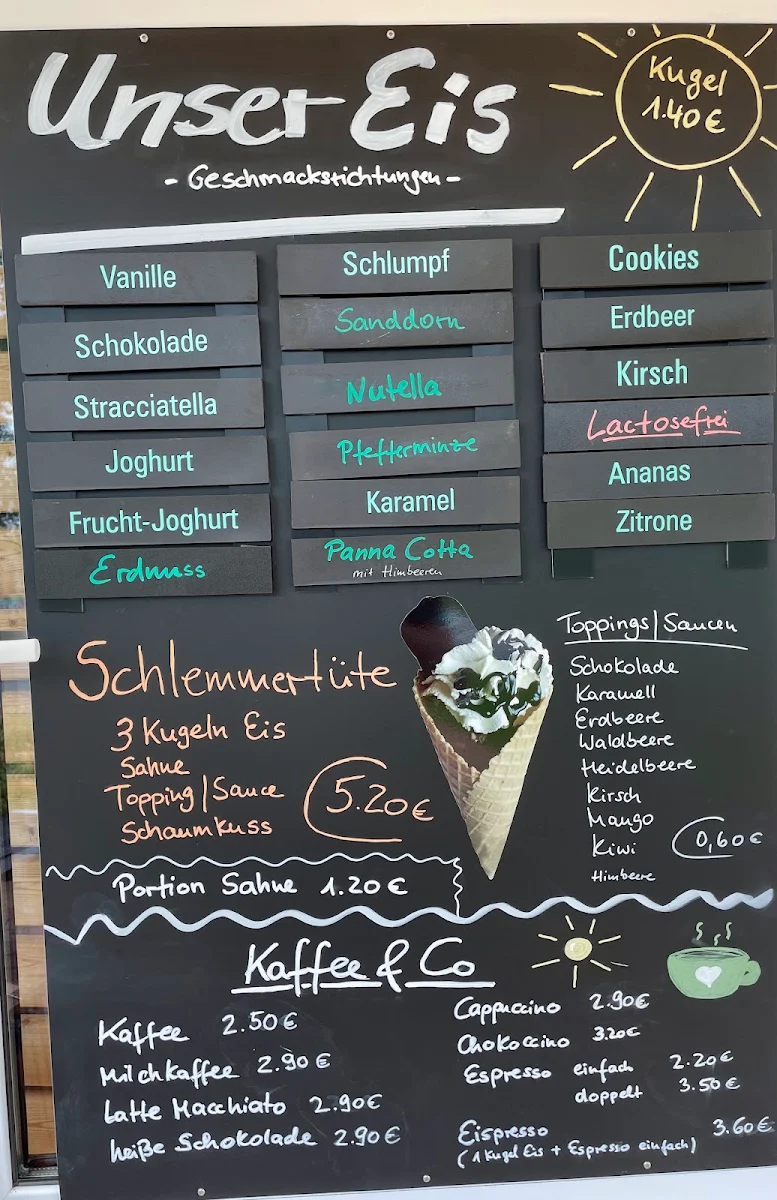 Unser Eis
- Geschmacksrichtungen -
Kugel
1.40 €
Vanille
Schokolade
Stracciatella
Joghurt
Frucht-Joghurt
Erdnuss
Schlumpf
Sanddorn
Nutella
Pfefferminze
Karamel
Panna Cotta
mit Himbeeren
Cookies
Erdbeer
Kirsch
Lactosefrei
Ananas
Zitrone
Schlemmertüte
3 Kugeln Eis
Sahne
Topping/Sauce
Schaumkuss
5.20 €
Toppings/Saucen
Schokolade
Karamell
Erdbeere
Waldbeere
Heidelbeere
Kirsch
Mango
Kiwi
Himbeere
0,60 €
Portion Sahne 1.20 €
Kaffee & Co
Kaffee 2.50 €
Milchkaffee 2.90 €
Latte Macchiato 2.90 €
heiße Schokolade 2.90 €
Cappuccino 2.90 €
Chokoccino 3.20 €
Espresso einfach 2.20 €
doppelt 3.50 €
Eispresso 3.60 €
(1 Kugel Eis + Espresso einfach)